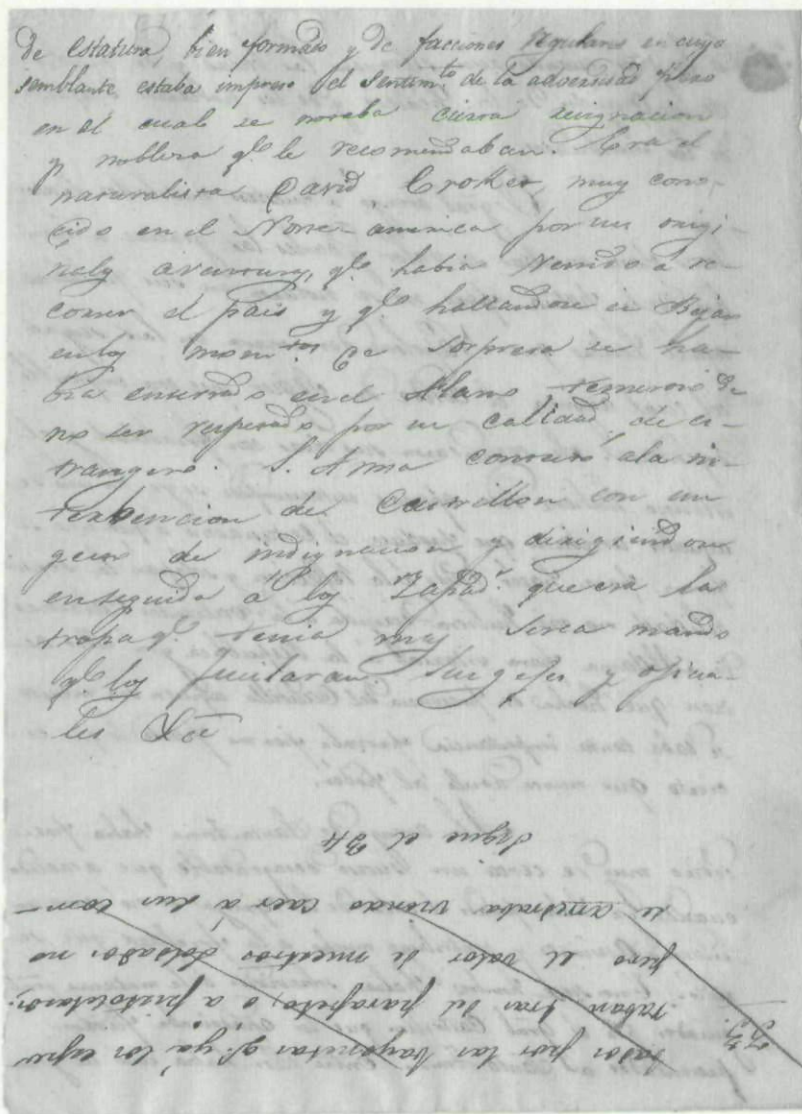 de estatura, bien formado y de facciones regulares en cuyo
semblante estaba impreso el sentim.to de la adversidad pero
en el cual se notaba cierta resignacion
y nobleza q.e le recomendaban. Era el
naturalista David Croket, muy cono-
cido en el Norte-america por sus
aventuras, q.e habia venido a re-
correr el pais y q.e hallandose en Bejar
en los mom.tos de sorpresa se ha-
bia encerrado en el Alamo, temeroso de
no ser respetado por su calidad de es-
trangero. S. Anna contestó á la in-
tervencion de Castrillon con un
gesto de indignacion y dirigiendose
enseguida á los Zapad.s que era la
tropa q.e tenia mas serca mando
q.e los fusilaran. Sus gefes y oficia-
les &a
Sigue el 34
se arredraba viendo caer á sus com-
pero el valor de nuestros soldados no
raban tras del parapeto; o a pistoletazos:
sados por las bayonetas q.e ya los espe